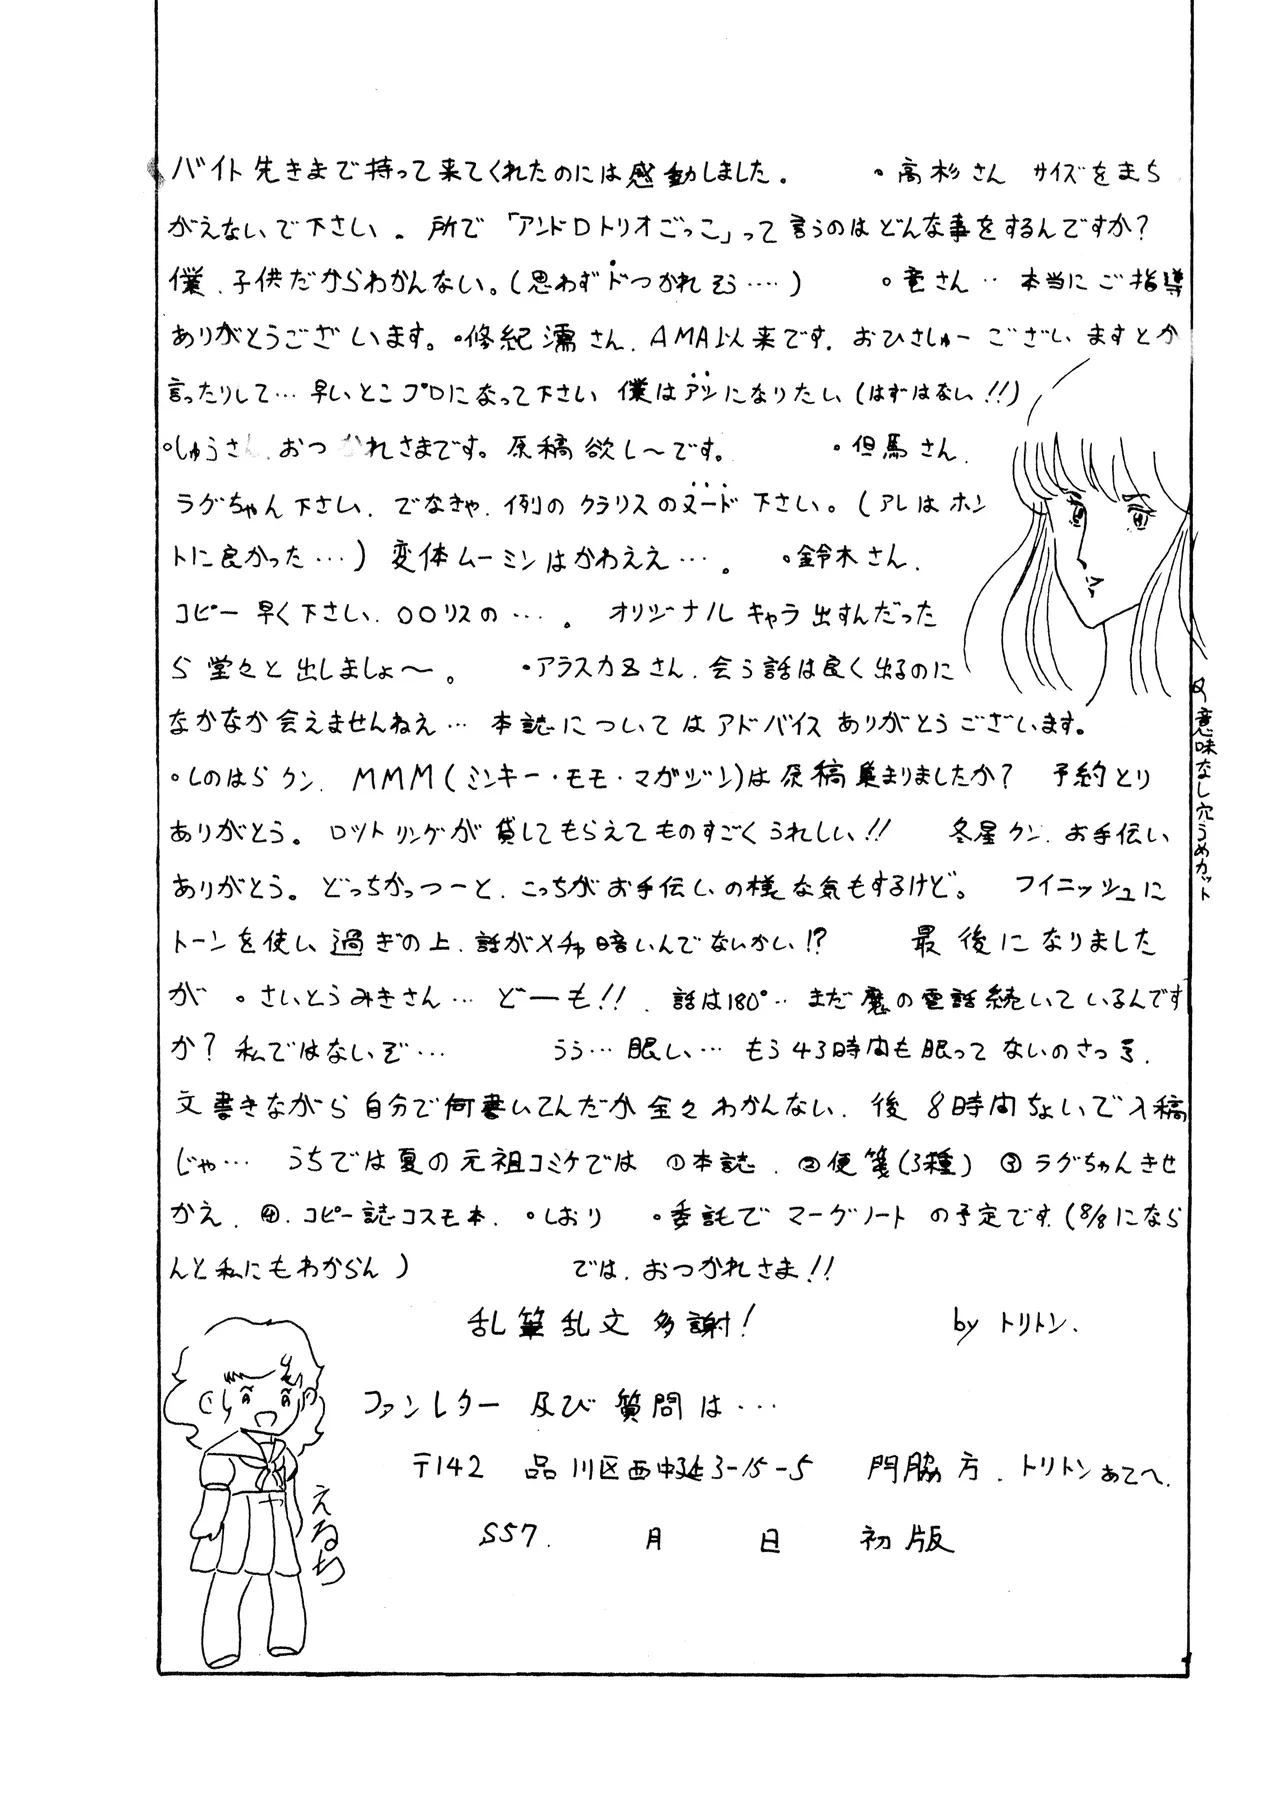 バイト先きまで持って来てくれたのには感動しました。 ・高杉さん サイズをまち
がえないで下さい。所で「アンドロトリオごっこ」って言うのはどんな事をするんですか?
僕、子供だからわかんない。(思わずドつかれそう‥‥) ・竜さん‥ 本当にご指導
ありがとうございます。・修紀濡さん、AMA以来です、おひさしゅーございますとか
言ったりして… 早いとこプロになって下さい 僕はアシになりたい(はずはない!!)
・しゅうさん、おつかれさまです。原稿欲し〜です。 ・但馬さん、
ラグちゃん下さい、でなきゃ、例のクラリスのヌード下さい。(アレはホン
トに良かった…) 変体ムーミンはかわええ…。 ・鈴木さん、
コピー早く下さい、〇〇リスの…。 オリジナルキャラ出すんだった
ら堂々と出しましょ〜。 ・アラスカ又さん、会う話は良く出るのに
なかなか会えませんねえ… 本誌についてはアドバイスありがとうございます。
・しのはらクン、MMM(ミンキー・モモ・マガジン)は原稿集まりましたか? 予約とり
ありがとう。ロットリングが貸してもらえてものすごくうれしい!! 冬星クン、お手伝い
ありがとう。どっちかっつーと、こっちがお手伝しの様な気もするけど。 フイニッシュに
トーンを使い過ぎの上、話がメチャ暗いんでないかい!? 最後になりました
が ・さいとうみきさん… どーも!!、話は180°‥ まだ魔の電話続いているんです
か? 私ではないぞ… うぅ… 眠い… もう43時間も眠ってないのさっ
文書きながら自分で何書いてんだか全々わかんない、後8時間ちょいで入稿
じゃ… うちでは夏の元祖コミケでは ①本誌、②便箋(3種) ③ラグちゃんきせ
かえ、④、コピー誌コスモ本、・しおり ・委託でマーグノートの予定です(8/8になら
んと私にもわからん) では、おつかれさま!!
乱筆乱文多謝! by トリトン.
ファンレター及び質問は…
〒142 品川区西中延3-15-5 門脇方、トリトンあてへ、
S57. 月 日 初版
意味なし穴うめカット
えるち